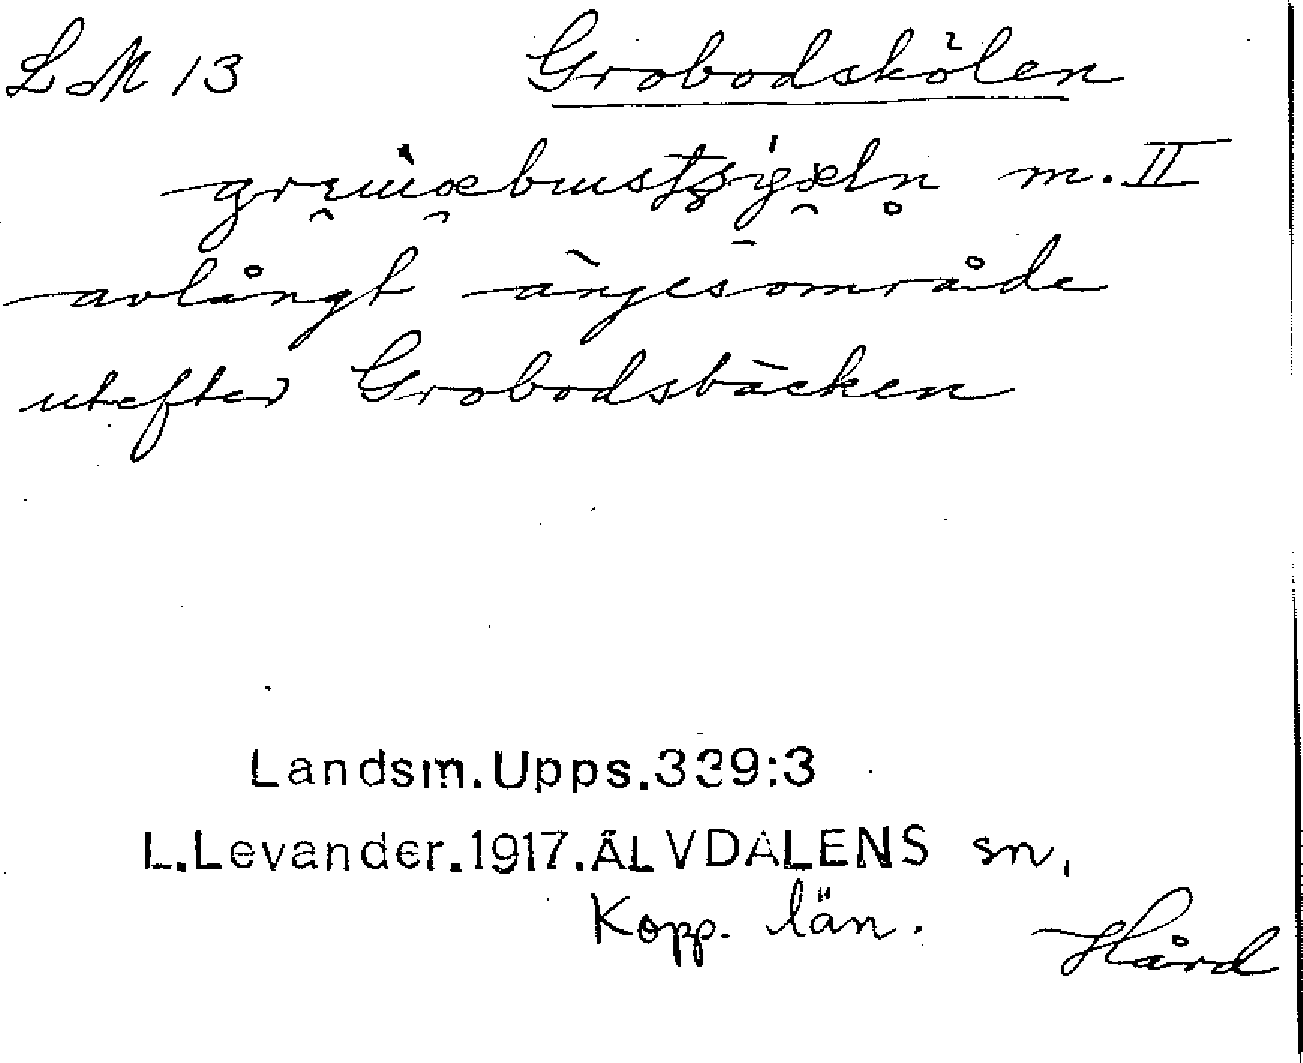 LM 13 Grobodskölen
m. II
avlångt ängesområde
utefter Grobodsbäcken
Landsm.Upps.339:3
L.Levander.1917.ÄLVDALENS sn,
Kopp. län. Hård